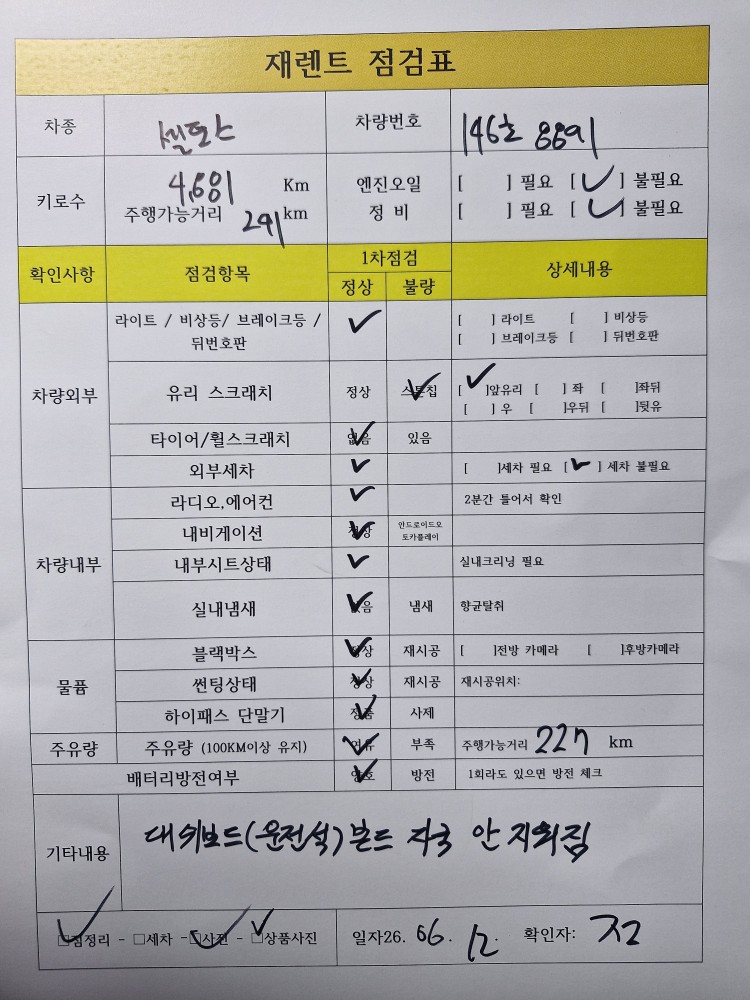 재렌트 점검표
차종 셀토스 차량번호 146호 8891
키로수 4,681 Km 엔진오일 [ ] 필요 [✓] 불필요
주행가능거리 291 km 정 비 [ ] 필요 [✓] 불필요
확인사항 점검항목 1차점검 상세내용
정상 불량
차량외부
라이트 / 비상등/ 브레이크등 / ✓ [ ] 라이트 [ ] 비상등
뒤번호판 [ ] 브레이크등 [ ] 뒤번호판
유리 스크래치 정상 스톤칩 ✓ [✓]앞유리 [ ] 좌 [ ]좌뒤
[ ] 우 [ ]우뒤 [ ]뒷유
타이어/휠스크래치 없음 ✓ 있음
외부세차 ✓ [ ]세차 필요 [✓] 세차 불필요
차량내부
라디오,에어컨 ✓ 2분간 틀어서 확인
내비게이션 정상 ✓ 안드로이드오
토카플레이
내부시트상태 ✓ 실내크리닝 필요
실내냄새 없음 ✓ 냄새 향균탈취
물품
블랙박스 정상 ✓ 재시공 [ ]전방 카메라 [ ]후방카메라
썬팅상태 정상 ✓ 재시공 재시공위치:
하이패스 단말기 정품 ✓ 사제
주유량 주유량 (100KM이상 유지) 여유 ✓ 부족 주행가능거리 227 km
배터리방전여부 양호 ✓ 방전 1회라도 있으면 방전 체크
기타내용 대쉬보드(운전석)본드 자국 안 지워짐
☑점정리 - □세차 -☑사진 - ☑상품사진 일자26. 06. 12. 확인자: